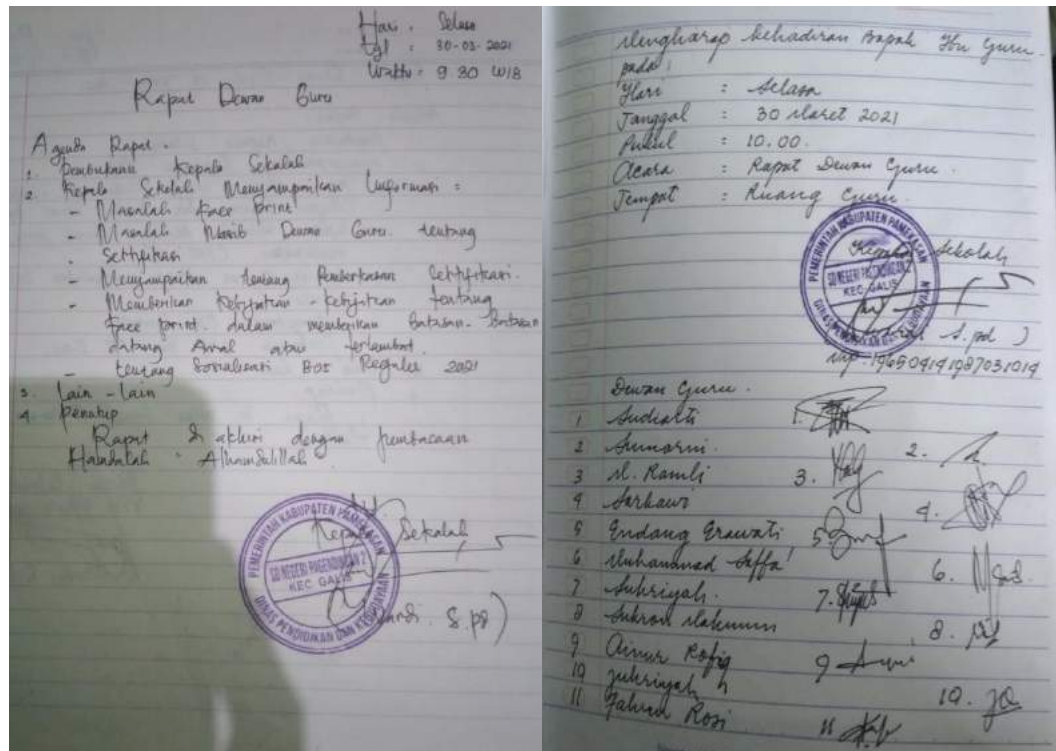 Hari : Selasa
Tgl : 30-03-2021
Waktu : 9.30 WIB
Rapat Dewan Guru
Agenda Rapat.
1. Pembukaan Kepala Sekolah
2. Kepala Sekolah Menyampaikan Imformasi :
- Masalah Face print
- Masalah Nasib Dewan Guru tentang
- Settifikasi
- Menyampaikan tentang Pemberkasan Settifikasi.
- Memberikan Kebijakan - kebijakan tentang
Face print. dalam memberikan batasan-batasan
datang Awal atau terlambat.
- tentang Sosialisasi BOS Reguler 2021
3. Lain - Lain
4. Penutup
Rapat di akhiri dengan pembacaan
Hamdalah Alhamdulillah
Kepala Sekolah
PEMERINTAH KABUPATEN PAMEKASAN
SD NEGERI PAGENDINGAN 2
KEC. GALIS
DINAS PENDIDIKAN DAN KEBUDAYAAN
S.pd)
Mengharap kehadiran Bapak Ibu Guru
pada :
Hari : Selasa
Tanggal : 30 Maret 2021
Pukul : 10.00.
Acara : Rapat Dewan Guru.
Tempat : Ruang Guru.
Kepala Sekolah
PEMERINTAH KABUPATEN PAMEKASAN
SD NEGERI PAGENDINGAN 2
KEC. GALIS
DINAS PENDIDIKAN DAN KEBUDAYAAN
S.pd )
Nip. 196509141987031014
Dewan Guru.
1 Sudiarti 1.
2 Sunarni. 2.
3 M. Ramli 3.
4 Sarkawi 4.
5 Endang Erawati 5
6 Muhammad Saffa' 6.
7 Suhriyah. 7.
8 Sukron Makmun 8.
9 Ainur Rofiq 9
10 Juhriyah 10.
11 Fahrur Rosi 11